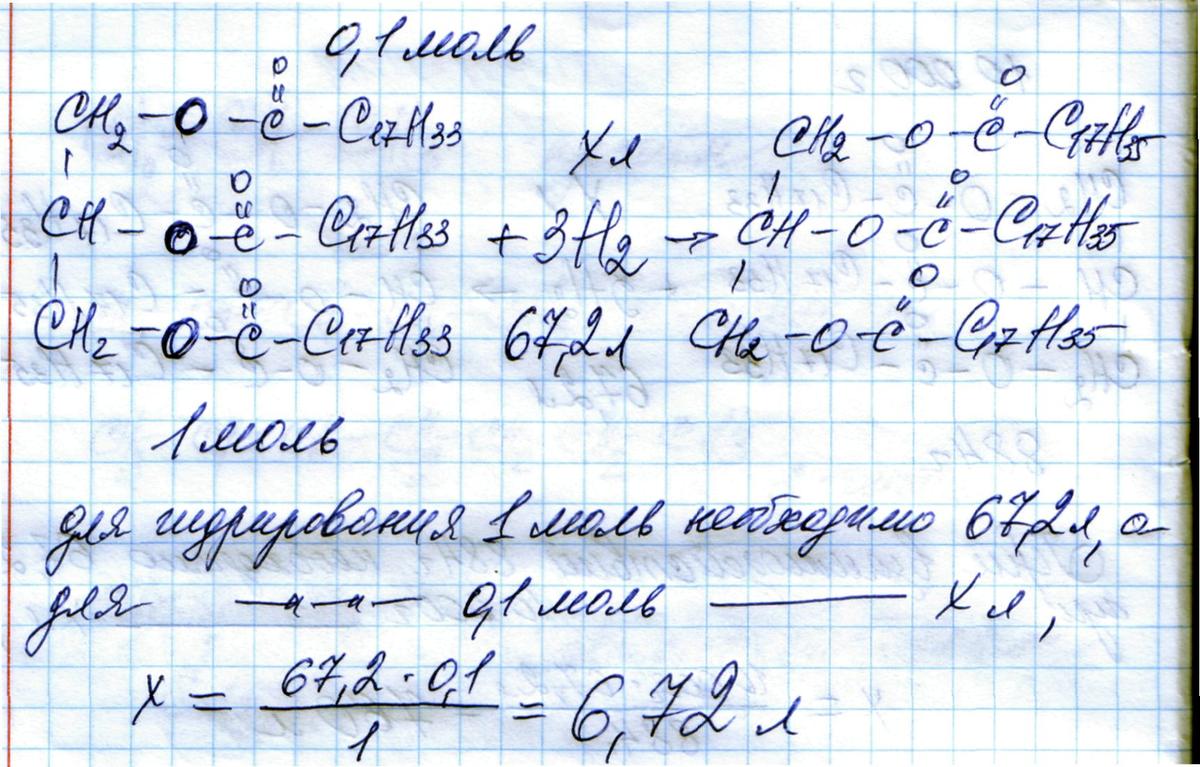 0,1 моль
O O
CH2 – O – C – C17H33 X л CH2 – O – C – C17H35
O O
CH – O – C – C17H33 + 3H2 → CH – O – C – C17H35
O O
CH2 – O – C – C17H33 67,2 л CH2 – O – C – C17H35
1 моль
для гидрирования 1 моль необходимо 67,2 л, а
для —"—"— 0,1 моль ——— X л,
x = 67,2 · 0,1 / 1 = 6,72 л